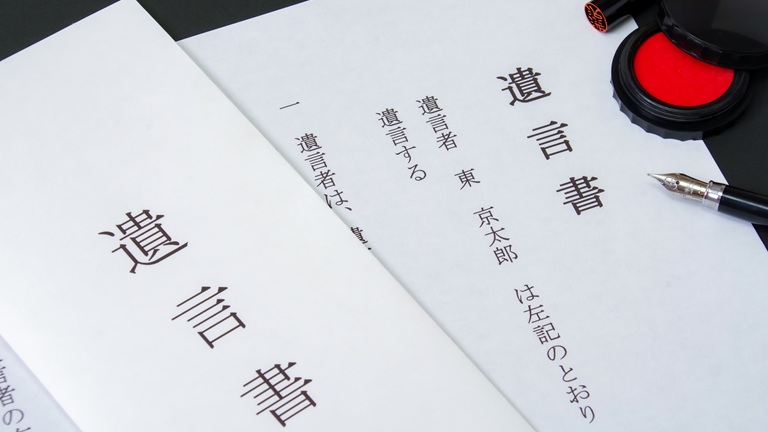 遺言書
遺言者 東 京太郎 は左記のとおり
遺言する
一 遺言者は、
遺言書